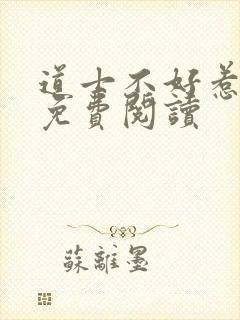 道士不好惹
免費閱讀
蘇離墨